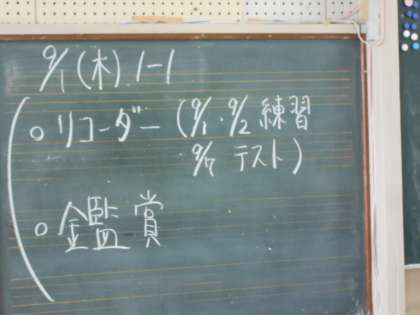 9/1(木) 1-1
○リコーダー(9/1・9/2 練習
9/7 テスト)
○鑑賞